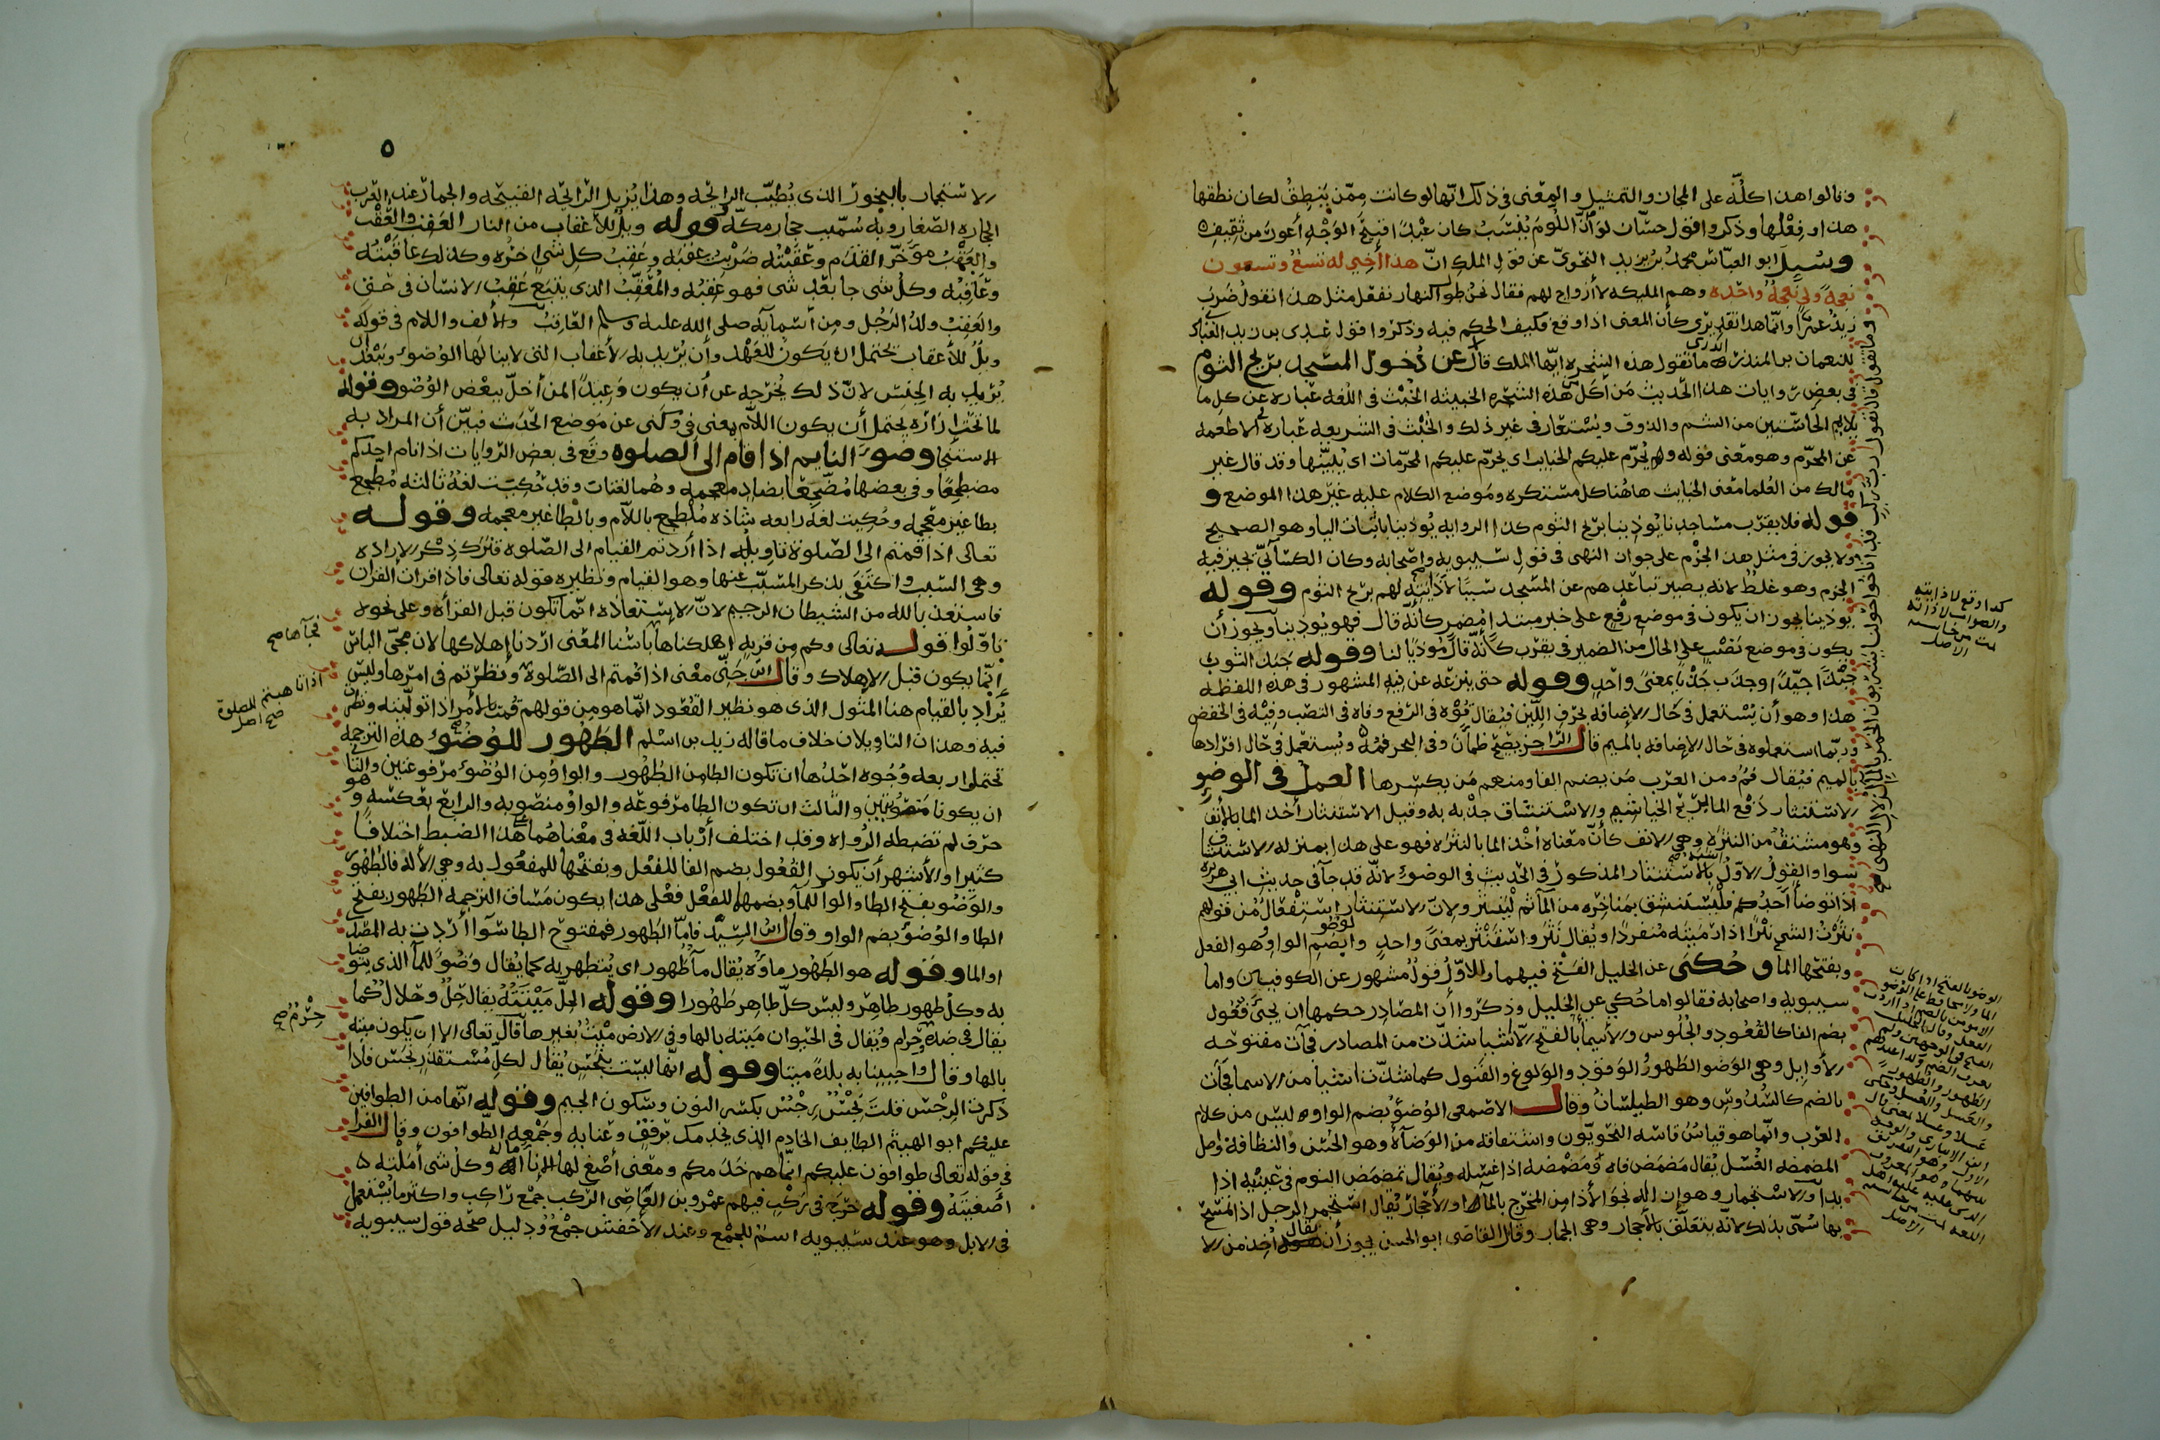 وقالوا هذا كله على المجاز والتمثيل والمعنى في ذلك انها لو كانت ممن ينطق لكان نطقها
هذا وفعلها وذكروا قول حسان لو أن اللوم ينسب كان عبدا قبيح الوجه أعور من ثقيف
وسيل ابو العباس محمد بن يزيد النحوي عن قول الملك ان هذا أخي له تسع وتسعون
نعجة ولي نعجة واحدة وهم المليكة لا أزواج لهم فقال نحن طول النهار نفعل مثل هذا نقول ضرب
زيد عمرا وانما هذا تقدير كأن المعنى اذا وقع فكيف الحكم فيه وذكروا قول عدي بن زيد العبادي
للنعمان بن المنذر اتدري ما تقول هذه الشجرة ايها الملك قال عن دخول المسجد بريح الثوم
في بعض روايات هذا الحديث من أكل من هذه الشجرة الخبيثة الخبث في اللغة عبارة عن كل ما
يلايم الحاستين من الشم والذوق ويستعار في غير ذلك والخبث في الشريعة عبارة الاطعمة
عن المحرم وهو معنى قوله ويحرم عليكم الخبايث اى يحرم عليكم المحرمات اى يبينها وقد قال غير
مالك من العلما معنى الخبايث هاهنا كل مستنكره وموضع الكلام عليه غير هذا الموضع و
قوله فلا يقرب مساجدنا يوذينا بريح الثوم كذا الرواية يوذينا باثبات اليا وهو الصحيح
ولا يجوز في مثل هذا الجزم على جواب النهى في قول سيبويه واصحابه وكان الكسآئي يجيز فيه
الجزم وهو غلط لانه يصير تباعدهم عن المسجد سببا لاذايته لهم بريح الثوم وقوله
يوذينا يجوز ان يكون في موضع رفع على خبر مبتدا مضمر كأنه قال فهو يوذينا ويجوز أن
يكون في موضع نصب على الحال من الضمير في يقرب كأنه قال موذيا لنا وقوله جبذ الثوب
جبذا جبذا وجذب جذبا بمعنى واحد وقوله حتى ينزعه عن فيه المشهور في هذه اللفظة
هذا وهو أن يستعمل في حال الإضافة بحرف اللين فيقال فوه في الرفع وفاه في النصب وفيه في الخفض
وربما استعملوه في حال الإضافة بالميم قال الراجز يصبح ظمأن وفي البحر فمه ويستعمل في حال افرادها
بالميم فيقال فم ومن العرب من يضم الفا ومنهم من يكسرها العمل في الوضو
الاستنثار دفع الما بريح الخياشيم والاستنشاق جذبه به وقيل الاستنثار أخذ الما بالأنف
وهو مشتق من النثرة وهي الانف كأن معناه أخذ الما بالنثرة فهو على هذا بمنزلة الاستنشاق
سوا والقول الاول بالاستنثار المذكور في الحديث في الوضوء لانه قد جآ في حديث ابي هريرة
اذا توضأ أحدكم فليستنشق بمناخره من المآ ثم لينثر ولان الاستنثار استفعال من قولهم
نثرت الشي نثرا اذا رميته متفردا ويقال نثر واستنثر بمعنى واحد والوضو بضم الواو وهو الفعل
وبفتحها الما وحكى عن الخليل الفتح فيهما والاول قول مشهور عن الكوفيين واما
سيبويه واصحابه فقالوا ما حكي عن الخليل وذكروا أن المصادر حكمها ان يجئ فعول
بضم الفا كالقعود والجلوس والأسما بالفتح الا أشيا شذت من المصادر فجآت مفتوحة
الأوايل وهي الوضو والطهور الوقود والولوغ والقبول كما شذت أشيا من الاسما فجآت
بالضم كالسدوس وهو الطيلسان وقال الاصمعى الوضوء بضم الواو ليس من كلام
العرب وانما هو قياس قاسه النحويون واشتقاقه من الوضآة وهو الحسن والنظافة واصل
المضمضة الغسل يقال مضمض فاه ومضمضه اذا غسله ويقال تمضمض النوم في عينيه اذا
بدا والاستجمار وهو ازالة نجو الأذا من المخرج بالمآ او الأحجار يقال استجمر الرجل اذا تمسح
بها سمى بذلك لانه يتعلق بالأحجار وهي الجمار وقال القاضى ابو الحسن يجوز أن يقال اخذ من الا
كذا وقع لاذايته
والصواب لاذاته
تمت من حاشية
الاصل
الوضو بالفتح اذا كان
الما والاسما
الفعل وقال الخليل
الفتح في الوجهين
الطهور والطهور
والغسل والغسل وحكى
غسلا وغسلا بمعنى قال
ابن الانباري والوجه
الاول وهو المعروف
الذي عليه اهل
اللغة تمت من حاشية
الاصل
٥
الاستجمار بالبخور الذى يطيب الرايحة وهذا يزيل الرايحة القبيحة والجمار عند العرب
الحجارة الصغار وبه سميت جمار مكة قوله ويل للأعقاب من النار العقب والعقب
والعقب موخر القدم وعقبته ضربت عقبه وعقب كل شي اخره وكذلك عاقبته
وعاقبه وكل شى جا بعد شى فهو عقبه والمعقب الذى يتبع عقب الانسان في حق
والعقب ولد الرجل ومن أسمآيه صلى الله عليه وسلم العاقب والألف واللام في قوله
ويل للأعقاب يحتمل ان يكون للعهد وأن يريد به الأعقاب التى لا ينالها الوضوء ويبعد ان
يريد به الجنس لان ذلك يخرجه عن أن يكون وعيدا لمن أخل ببعض الوضو وقوله
لما تحت ازاره يحتمل أن يكون اللام بمعنى في وكنى عن موضع الحدث فبين أن المراد به
الاستنجا وضوء النايم اذا قام الى الصلوة وقع في بعض الروايات اذا نام احدكم
مضطجعا وفي بعضها مضجعا بضاد معجمة وهما لغتان وقد حكيت لغة ثالثة مطجع
بطا غير معجمة وحكيت لغة رابعة شاذة ملطجع باللام وبالطا غير معجمة وقوله
تعالى اذا قمتم الى الصلوة تاويله اذا أردتم القيام الى الصلوة فترك ذكر الإرادة
وهى السبب واكتفى بذكر المسبب عنها وهو القيام ونظيره قوله تعالى فاذا قرات القران
فاستعذ بالله من الشيطان الرجيم لان الاستعاذة انما تكون قبل القرأة وعلى نحوه
تاولوا قوله تعالى وكم من قرية اهلكناها بأسنا المعنى اردنا إهلاكها لان مجى الباس
انما يكون قبل الإهلاك وقال ابن جنى معنى اذا قمتم الى الصلوة ونظرتم في امرها وليس
يراد بالقيام هنا المثول الذى هو نظير القعود انما هو من قولهم قمت بالأمر اذا توليته ونظرت
فيه وهذان التاويلان خلاف ما قاله زيد بن اسلم الطهور للوضوء هذه الترجمة
تحتمل اربعة وجوه احدها ان تكون الطا من الطهور والواو من الوضوء مرفوعتين والثاني
ان يكونا منصوبتين والثالث ان تكون الطا مرفوعة والواو منصوبة والرابع بعكسه وهو
حرف لم تضبطه الرواة وقد اختلف أرباب اللغة في معناهما هذا الضبط اختلافا
كثيرا والأشهر أن يكون الفعول بضم الفا للفعل وبفتحها للمفعول به وهي الألة فالطهور
والوضو بفتح الطا والواو للمآ وبضمها للفعل فعلى هذا يكون مساق الترجمة الطهور بفتح
الطا والوضوء بضم الواو وقال ابن السيد فاما الطهور فمفتوح الطا سوآ أردت به المصدر
او الما وقوله هو الطهور ماؤه يقال مآ طهور اى يتطهر به كما يقال وضوء للمآ الذى يتوضا
به وكل طهور طاهر وليس كل طاهر طهورا وقوله الحل ميتته يقال حل وحلال كما
يقال في ضده حرام ويقال في الحيوان ميتة بالها وفي الارض ميت بغير ها قال تعالى الا ان يكون ميتة
بالها وقال واحيينا به بلدة ميتا وقوله انها ليست بنجس يقال لكل مستقذر نجس فاذا
ذكرت الرجس قلت نجس رجس بكسر النون وسكون الجيم وقوله انها من الطوافين
عليكم ابو الهيثم الطايف الخادم الذى يخدمك برفق وعناية وجمعه الطوافون وقال الفرا
في قوله تعالى طوافون عليكم انما هم خدمكم ومعنى أصغى لها الإنا اماله وكل شى أملته
اصغيته وقوله خرج في ركب فيهم عمرو بن العاصى الركب جمع راكب واكثر ما يستعمل
في الإبل وهو عند سيبويه اسم للجمع وعند الأخفش جمع ودليل صحة قول سيبويه
فجآها صح
اذا تاهبتم للصلوة
صح اصل
حرم صح